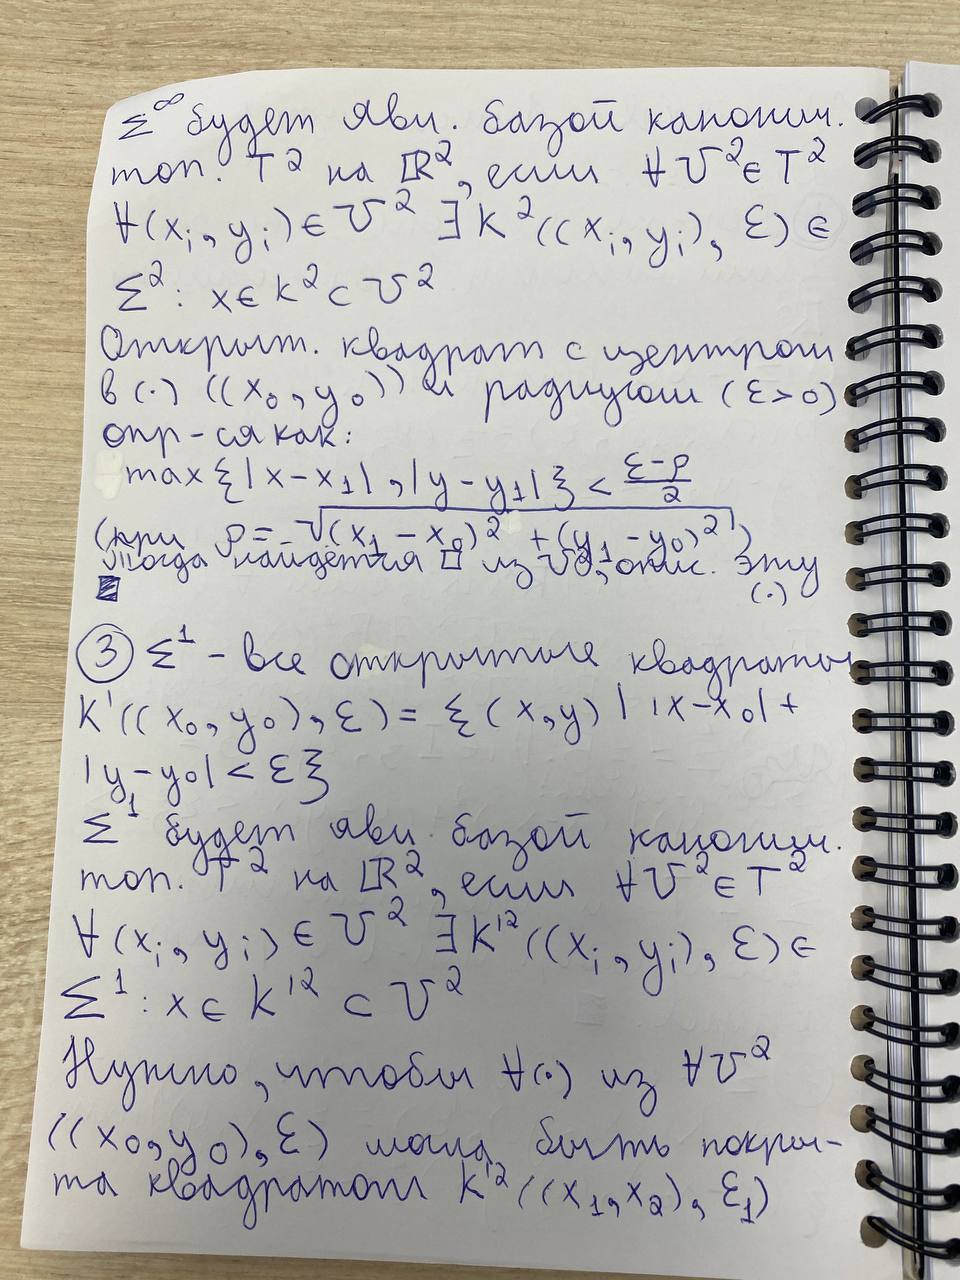 Σ^∞ будет явл. базой канонич.
топ. T² на ℝ², если ∀U²∈T²
∀(xᵢ, yᵢ)∈U² ∃K²((xᵢ, yᵢ), ε)∈
Σ²: x∈K²⊂U²
Открыт. квадрат с центром
в (·) ((x₀, y₀)) и радиусом (ε>0)
опр-ся как:
max{|x-x₁|, |y-y₁|} < (ε-ρ)/2
(при ρ = √((x₁-x₀)² + (y₁-y₀)²))
Тогда найдётся □ из опис. эту
(·)
③ Σ¹ - все открытые квадраты
K'((x₀, y₀), ε) = {(x,y) | |x-x₀| +
|y-y₀| < ε}
Σ¹ будет явл. базой канонич.
топ. T² на ℝ², если ∀U²∈T²
∀(xᵢ, yᵢ)∈U² ∃K'²((xᵢ, yᵢ), ε)∈
Σ¹: x∈K'²⊂U²
Нужно, чтобы ∀(·) из ∀U²
((x₀, y₀), ε) могла быть покры-
та квадратом K'²((x₁, x₂), ε₁)